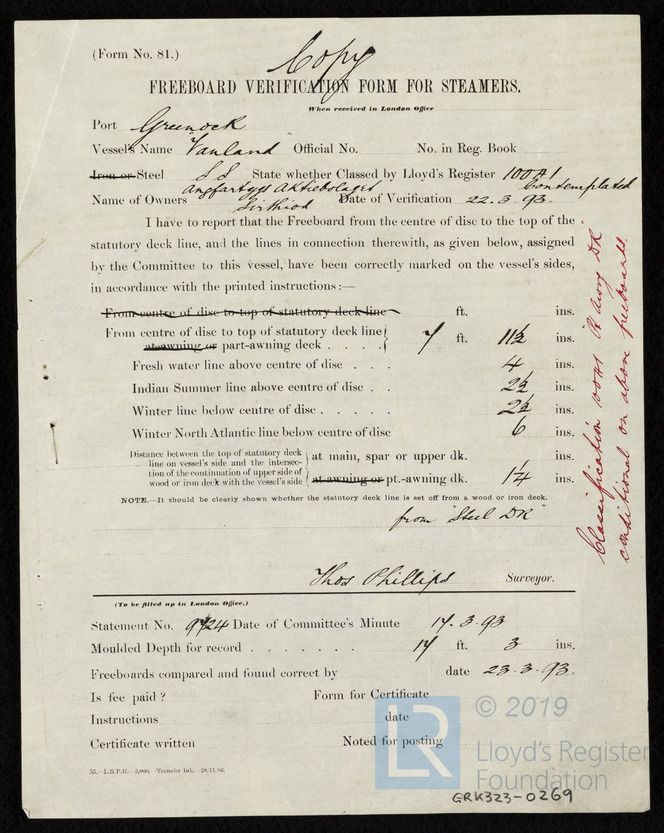 (Form No. 81.)
Copy
FREEBOARD VERIFICATION FORM FOR STEAMERS.
When received in London Office
Port Greenock
Vessel's Name "Vanland" Official No. No. in Reg. Book
Iron or Steel SS State whether Classed by Lloyd's Register 100A1 Contemplated
Name of Owners Angfartygs Aktiebolaget Date of Verification 22.3.93.
I have to report that the Freeboard from the centre of disc to the top of the
statutory deck line, and the lines in connection therewith, as given below, assigned
by the Committee to this vessel, have been correctly marked on the vessel's sides,
in accordance with the printed instructions:—
From centre of disc to top of statutory deck line ft. ins.
From centre of disc to top of statutory deck line
at awning or part-awning deck . . . . 7 ft. 11½ ins.
Fresh water line above centre of disc . . . 4 ins.
Indian Summer line above centre of disc . . 2½ ins.
Winter line below centre of disc . . . . . 2½ ins.
Winter North Atlantic line below centre of disc 6 ins.
Distance between the top of statutory deck
line on vessel's side and the intersec-
tion of the continuation of upper side of
wood or iron deck with the vessel's side
at main, spar or upper dk. ins.
at awning or pt.-awning dk. 1¼ ins.
NOTE.—It should be clearly shown whether the statutory deck line is set off from a wood or iron deck.
from "Steel DK"
Classification 100A1 Pt Awng DK
conditional on above freeboard
Thos Phillips Surveyor.
(To be filled up in London Office.)
Statement No. 9724 Date of Committee's Minute 17.3.93
Moulded Depth for record . . . . . . . 17 ft. 3 ins.
Freeboards compared and found correct by date 23.3.93.
Is fee paid? Form for Certificate
Instructions date
Certificate written Noted for posting
55.—L.R.P.H.—3,000.—Transfer Ink.—28/11/92.
LR
© 2019
Lloyd's Register
Foundation
GRK323-0269